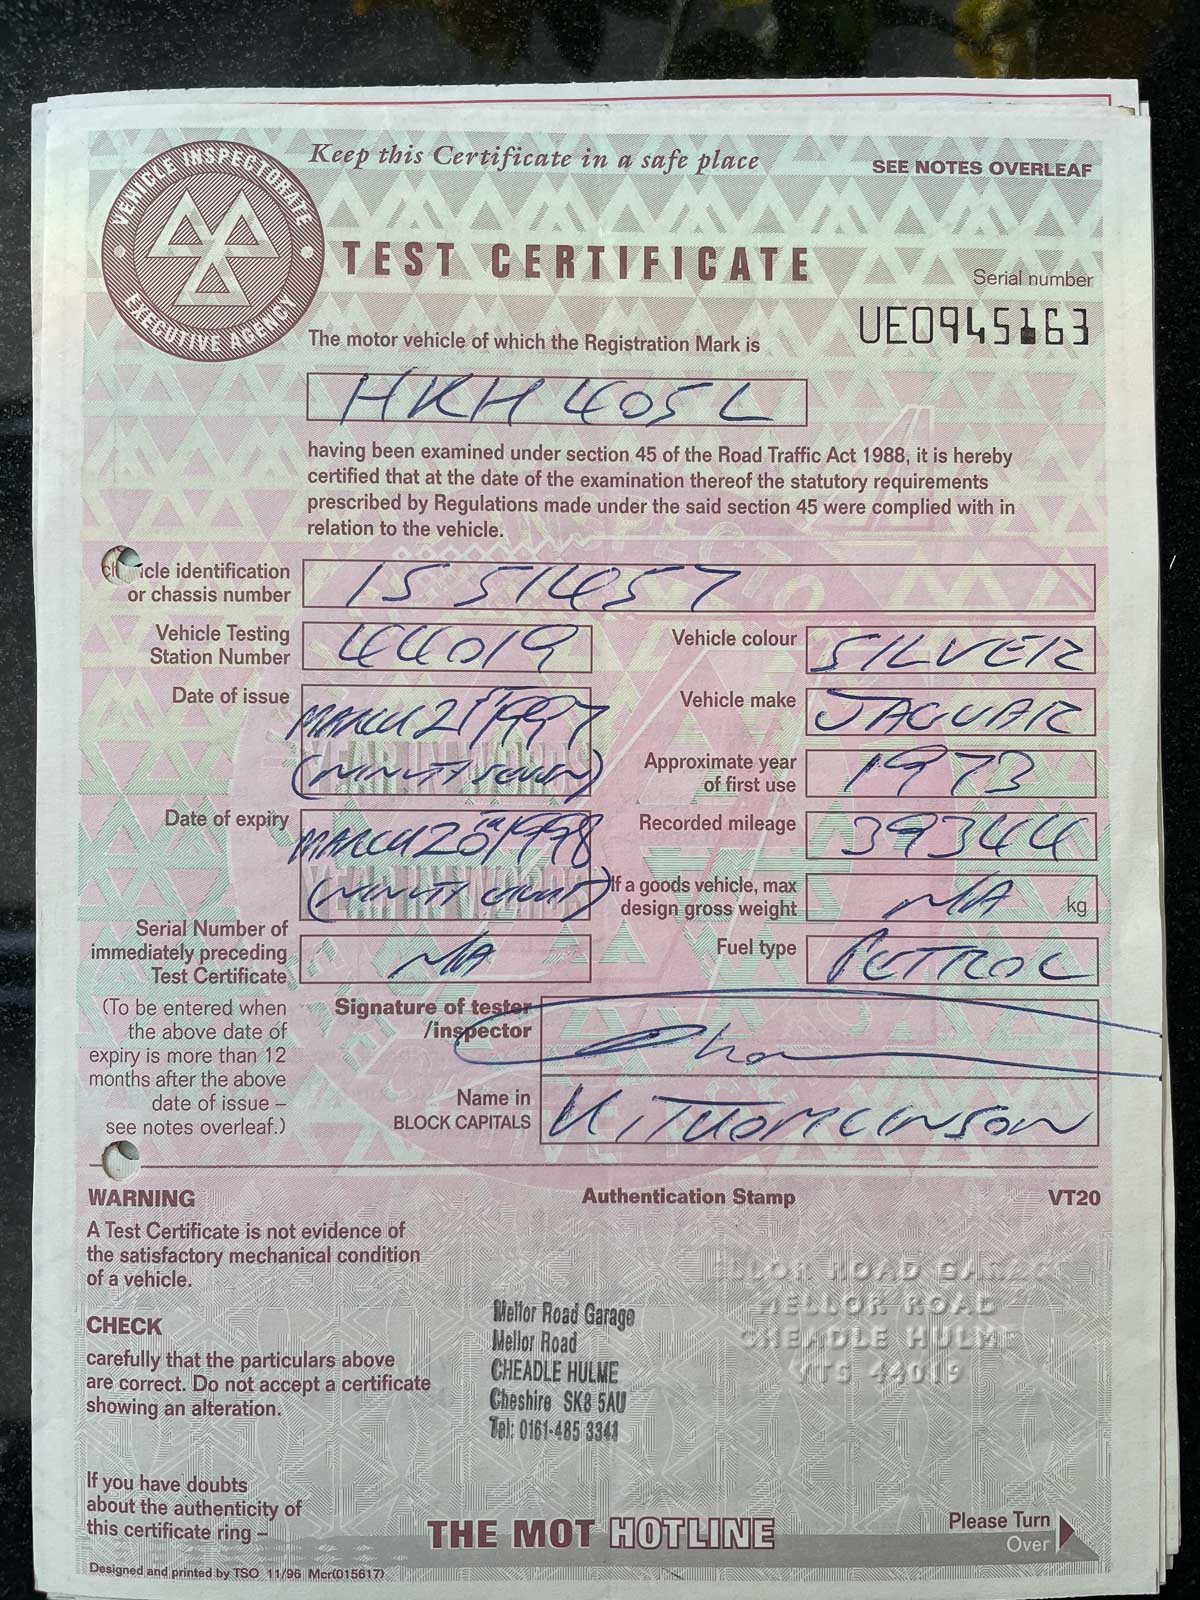 VEHICLE INSPECTORATE
EXECUTIVE AGENCY
Keep this Certificate in a safe place
SEE NOTES OVERLEAF
TEST CERTIFICATE
Serial number
UE0945163
The motor vehicle of which the Registration Mark is
HKH 405L
having been examined under section 45 of the Road Traffic Act 1988, it is hereby
certified that at the date of the examination thereof the statutory requirements
prescribed by Regulations made under the said section 45 were complied with in
relation to the vehicle.
icle identification
or chassis number
1S 51457
Vehicle Testing
Station Number
44019
Vehicle colour
SILVER
Date of issue
MARCH 21st 1997
(NINETY SEVEN)
YEAR IN WORDS
Vehicle make
JAGUAR
Approximate year
of first use
1973
Date of expiry
MARCH 20th 1998
(NINETY EIGHT)
YEAR IN WORDS
Recorded mileage
39344
If a goods vehicle, max
design gross weight
N/A
kg
Serial Number of
immediately preceding
Test Certificate
N/A
Fuel type
PETROL
(To be entered when
the above date of
expiry is more than 12
months after the above
date of issue –
see notes overleaf.)
Signature of tester
/inspector
Name in
BLOCK CAPITALS
THOMLINSON
WARNING
Authentication Stamp
VT20
A Test Certificate is not evidence of
the satisfactory mechanical condition
of a vehicle.
CHECK
carefully that the particulars above
are correct. Do not accept a certificate
showing an alteration.
Mellor Road Garage
Mellor Road
CHEADLE HULME
Cheshire SK8 5AU
Tel: 0161-485 3341
ELLOR ROAD GARAGE
MELLOR ROAD
CHEADLE HULME
VTS 44019
If you have doubts
about the authenticity of
this certificate ring –
THE MOT HOTLINE
Please Turn
Over
Designed and printed by TSO 11/96 Mcr(015617)